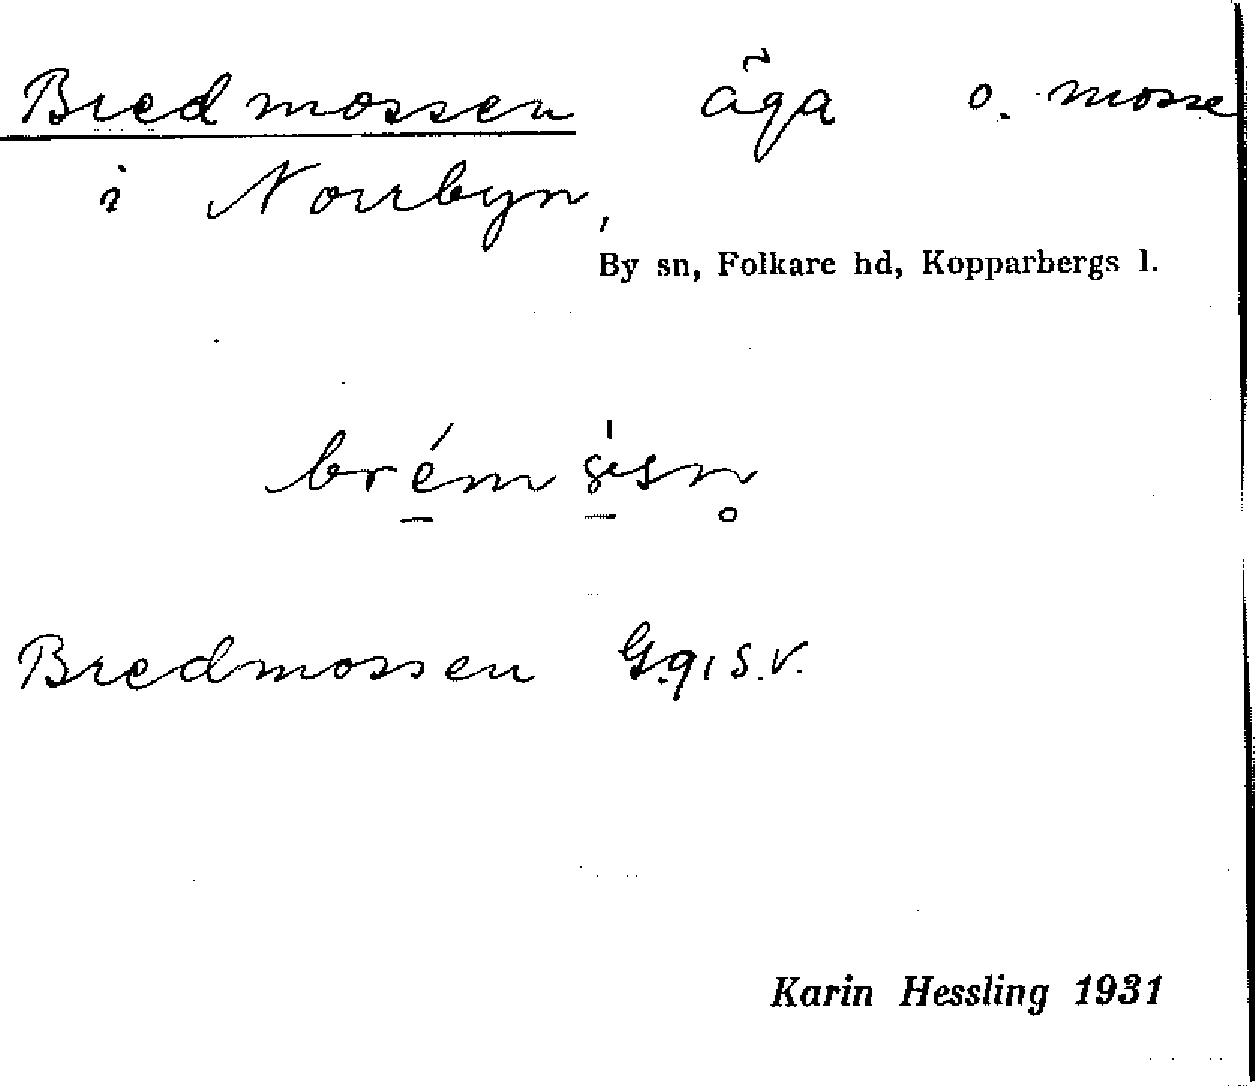 Bredmossen äga o. mosse
i Norrbyn,
By sn, Folkare hd, Kopparbergs l.
Bredmossen G.q, s.v.
Karin Hessling 1931